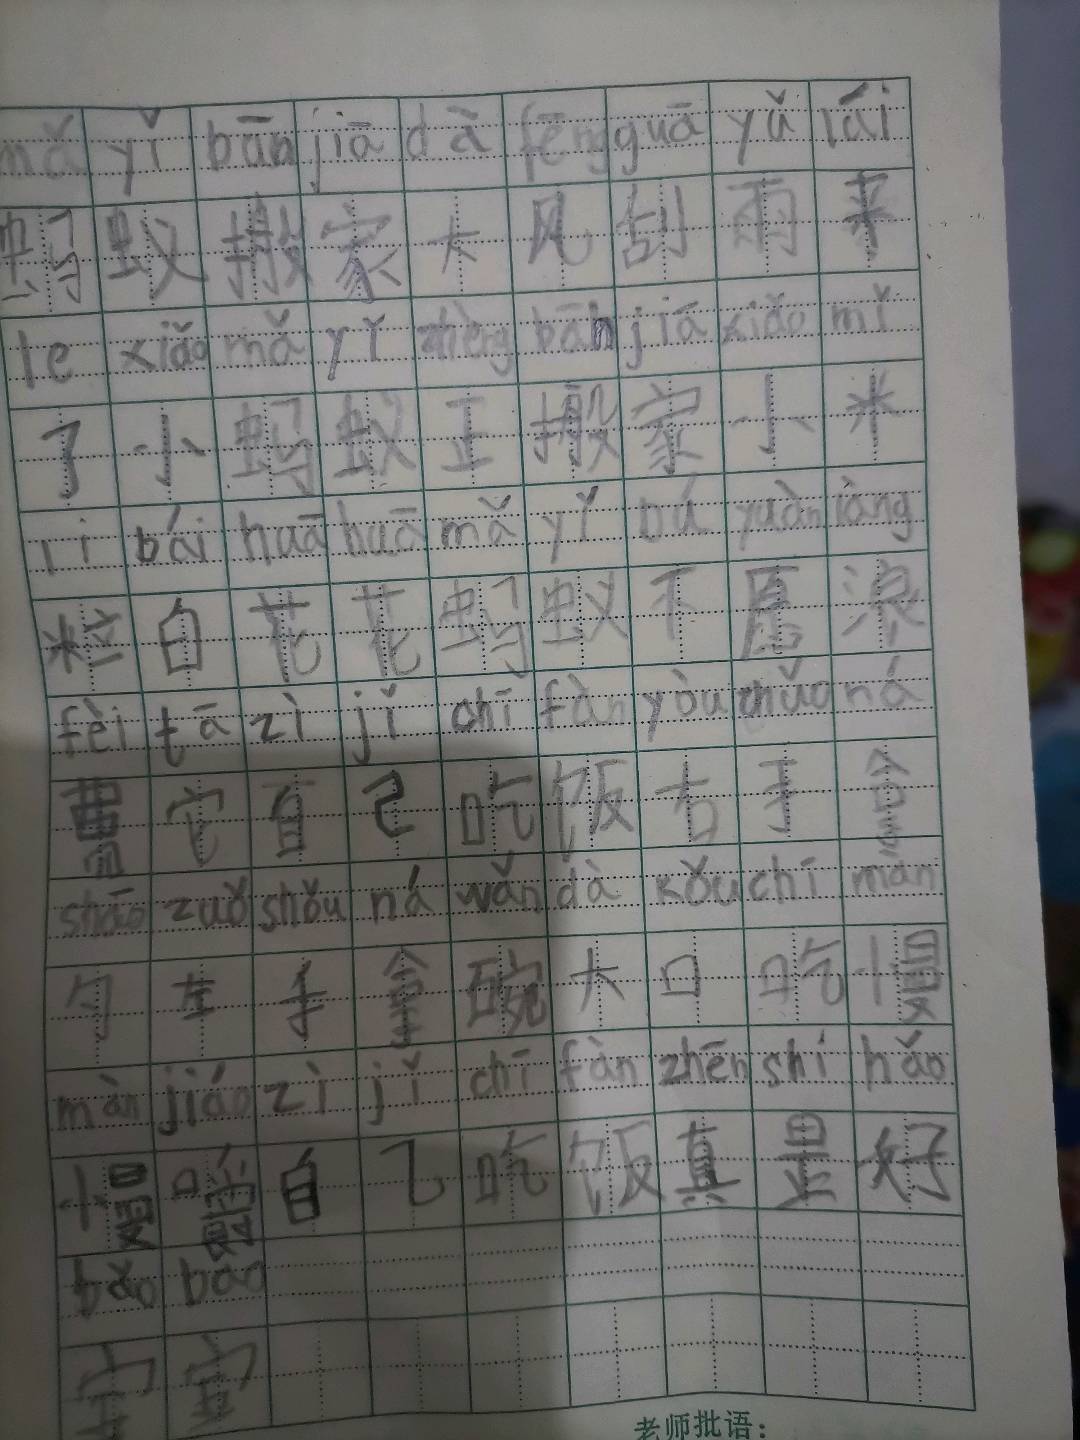 mǎ yǐ bān jiā dà fēng guā yǔ lái
蚂蚁搬家大风刮雨来
le xiǎo mǎ yǐ zhèng bān jiā xiǎo mǐ
了小蚂蚁正搬家小米
lì bái huā huā mǎ yǐ bú yuàn làng
粒白花花蚂蚁不愿浪
fèi tā zì jǐ chī fàn yòu shǒu ná
费它自己吃饭右手拿
sháo zuǒ shǒu ná wǎn dà kǒu chī màn
勺左手拿碗大口吃慢
màn jiáo zì jǐ chī fàn zhēn shì hǎo
慢嚼自己吃饭真是好
bǎo bao
宝宝
老师批语：